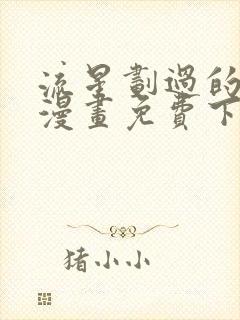 流星劃過的
漫畫免費下
猪小小